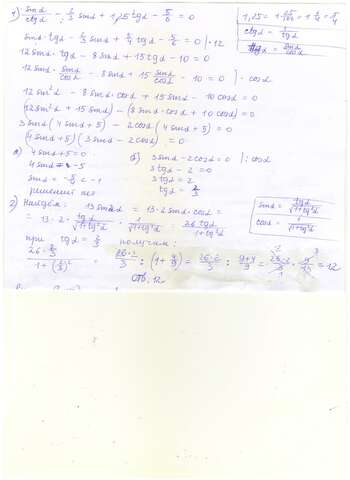 1) sinα/ctgα - 2/3 sinα + 1,25 tgα - 5/6 = 0
1,25 = 1 25/100 = 1 1/4 = 5/4
ctgα = 1/tgα
tgα = sinα/cosα
sinα·tgα - 2/3 sinα + 5/4 tgα - 5/6 = 0 |·12
12 sinα·tgα - 8 sinα + 15 tgα - 10 = 0
12 sinα · sinα/cosα - 8 sinα + 15 sinα/cosα - 10 = 0 |·cosα
12 sin²α - 8 sinα·cosα + 15 sinα - 10 cosα = 0
(12 sin²α + 15 sinα) - (8 sinα·cosα + 10 cosα) = 0
3 sinα (4 sinα + 5) - 2 cosα (4 sinα + 5) = 0
(4 sinα + 5) (3 sinα - 2 cosα) = 0
а) 4 sinα + 5 = 0
4 sinα = -5
sinα = -5/4 < -1
решений нет
б) 3 sinα - 2 cosα = 0 |:cosα
3 tgα - 2 = 0
3 tgα = 2
tgα = 2/3
2) Найдём: 13 sin2α = 13·2 sinα·cosα =
= 13·2· tgα/√1+tg²α · 1/√1+tg²α = 26 tgα/1+tg²α
sinα = tgα/√1+tg²α
cosα = 1/√1+tg²α
при tgα = 2/3 получим:
26·2/3 / 1+(2/3)² = 26·2/3 : (1 + 4/9) = 26·2/3 : 9+4/9 = 26·2/3 · 9/13 = 12
Отв: 12